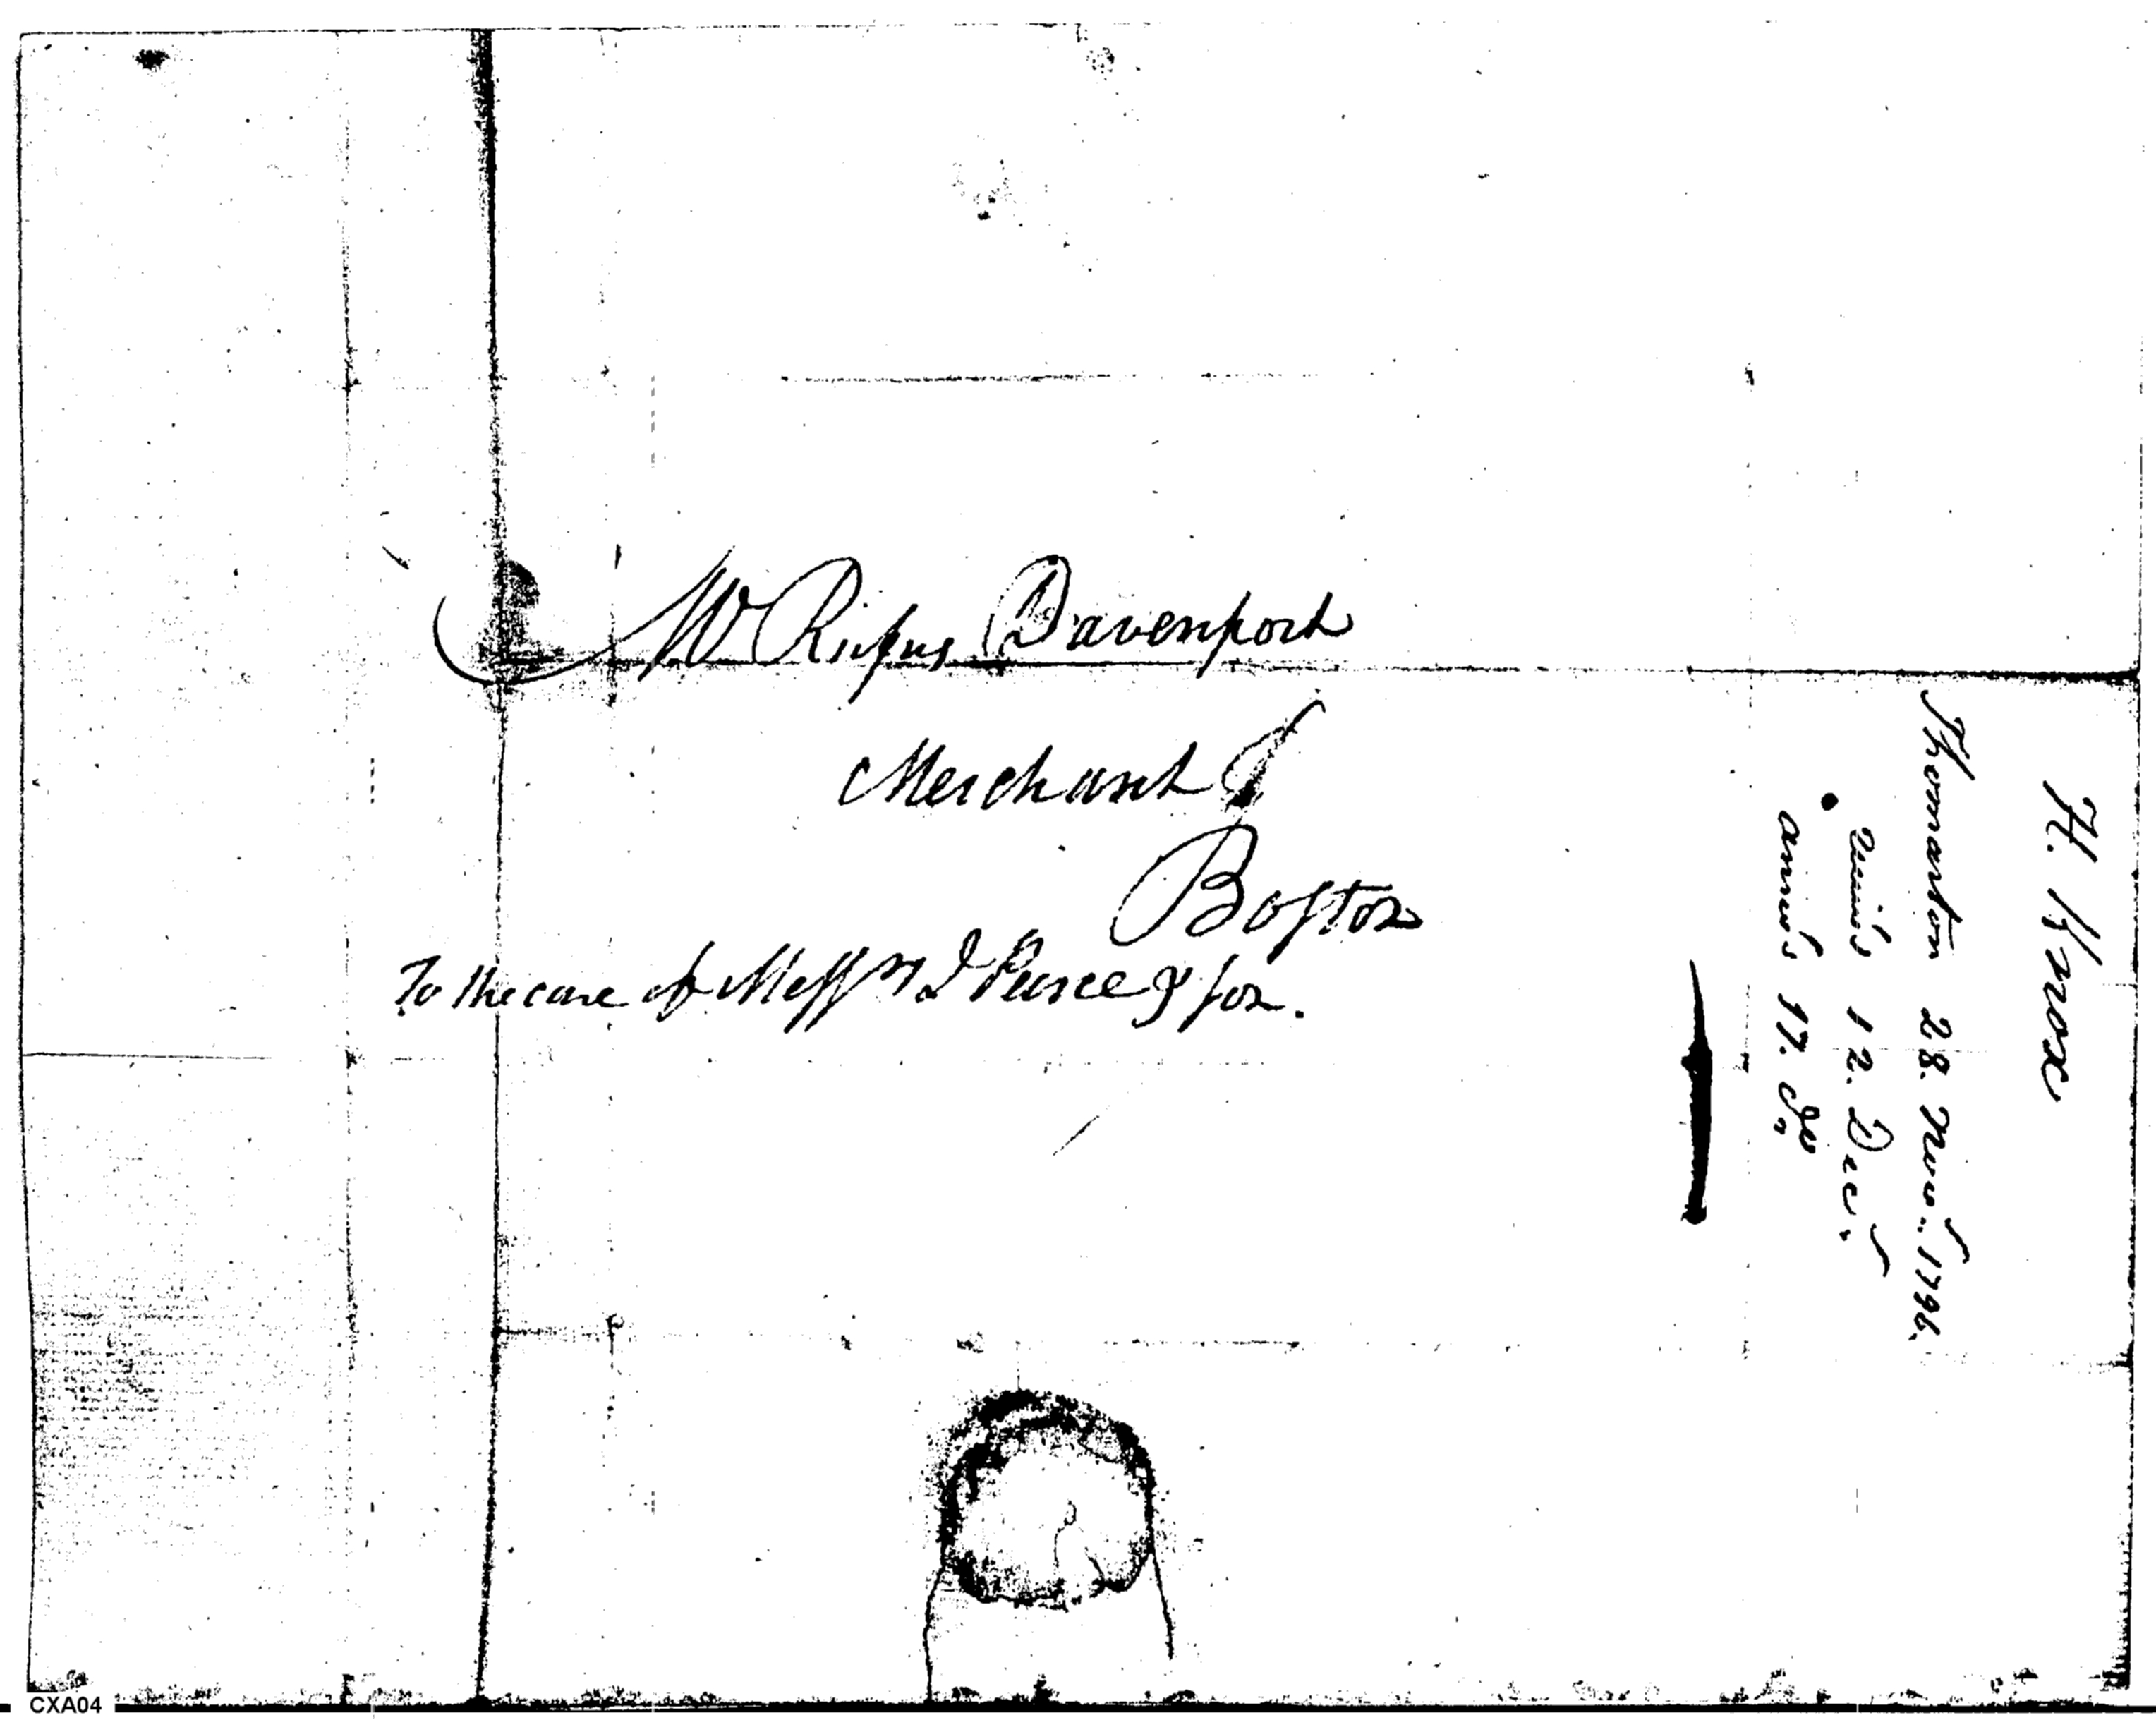 Mr Rufus Davenport
Merchant
Boston
To the care of Messrs J Peirce & son.
H. Knox
Thomaston 28. Novr. 1796.
12. Decr.
answd 17. do
CXA04